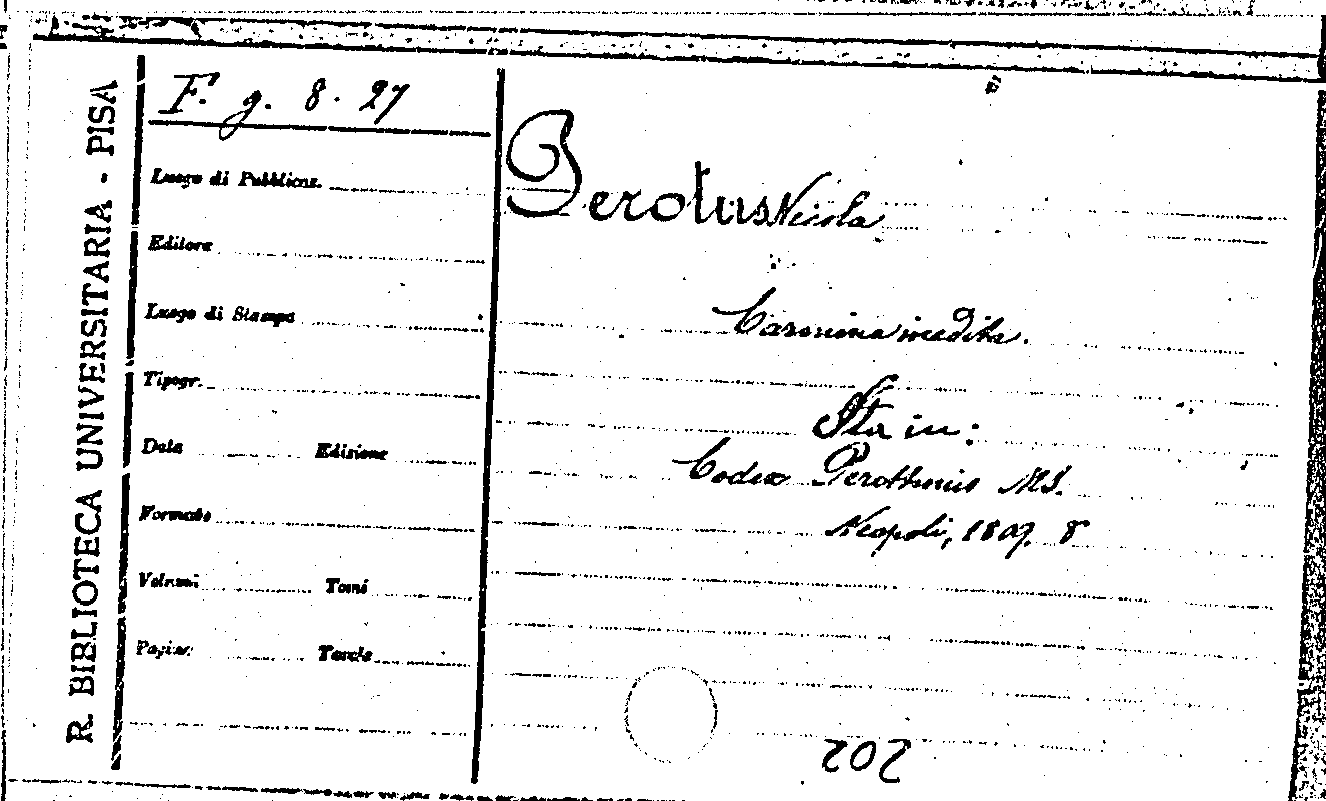 R. BIBLIOTECA UNIVERSITARIA - PISA
F. g. 8. 27
Luogo di Pubblicaz.
Editore
Luogo di Stampa
Tipogr.
Data Edizione
Formato
Volumi Tomi
Pagine Tavole
Perotus Nicola
Carmina inedita.
Sta in:
Codex Perottinus MS.
Neapoli, 1809. 8
202